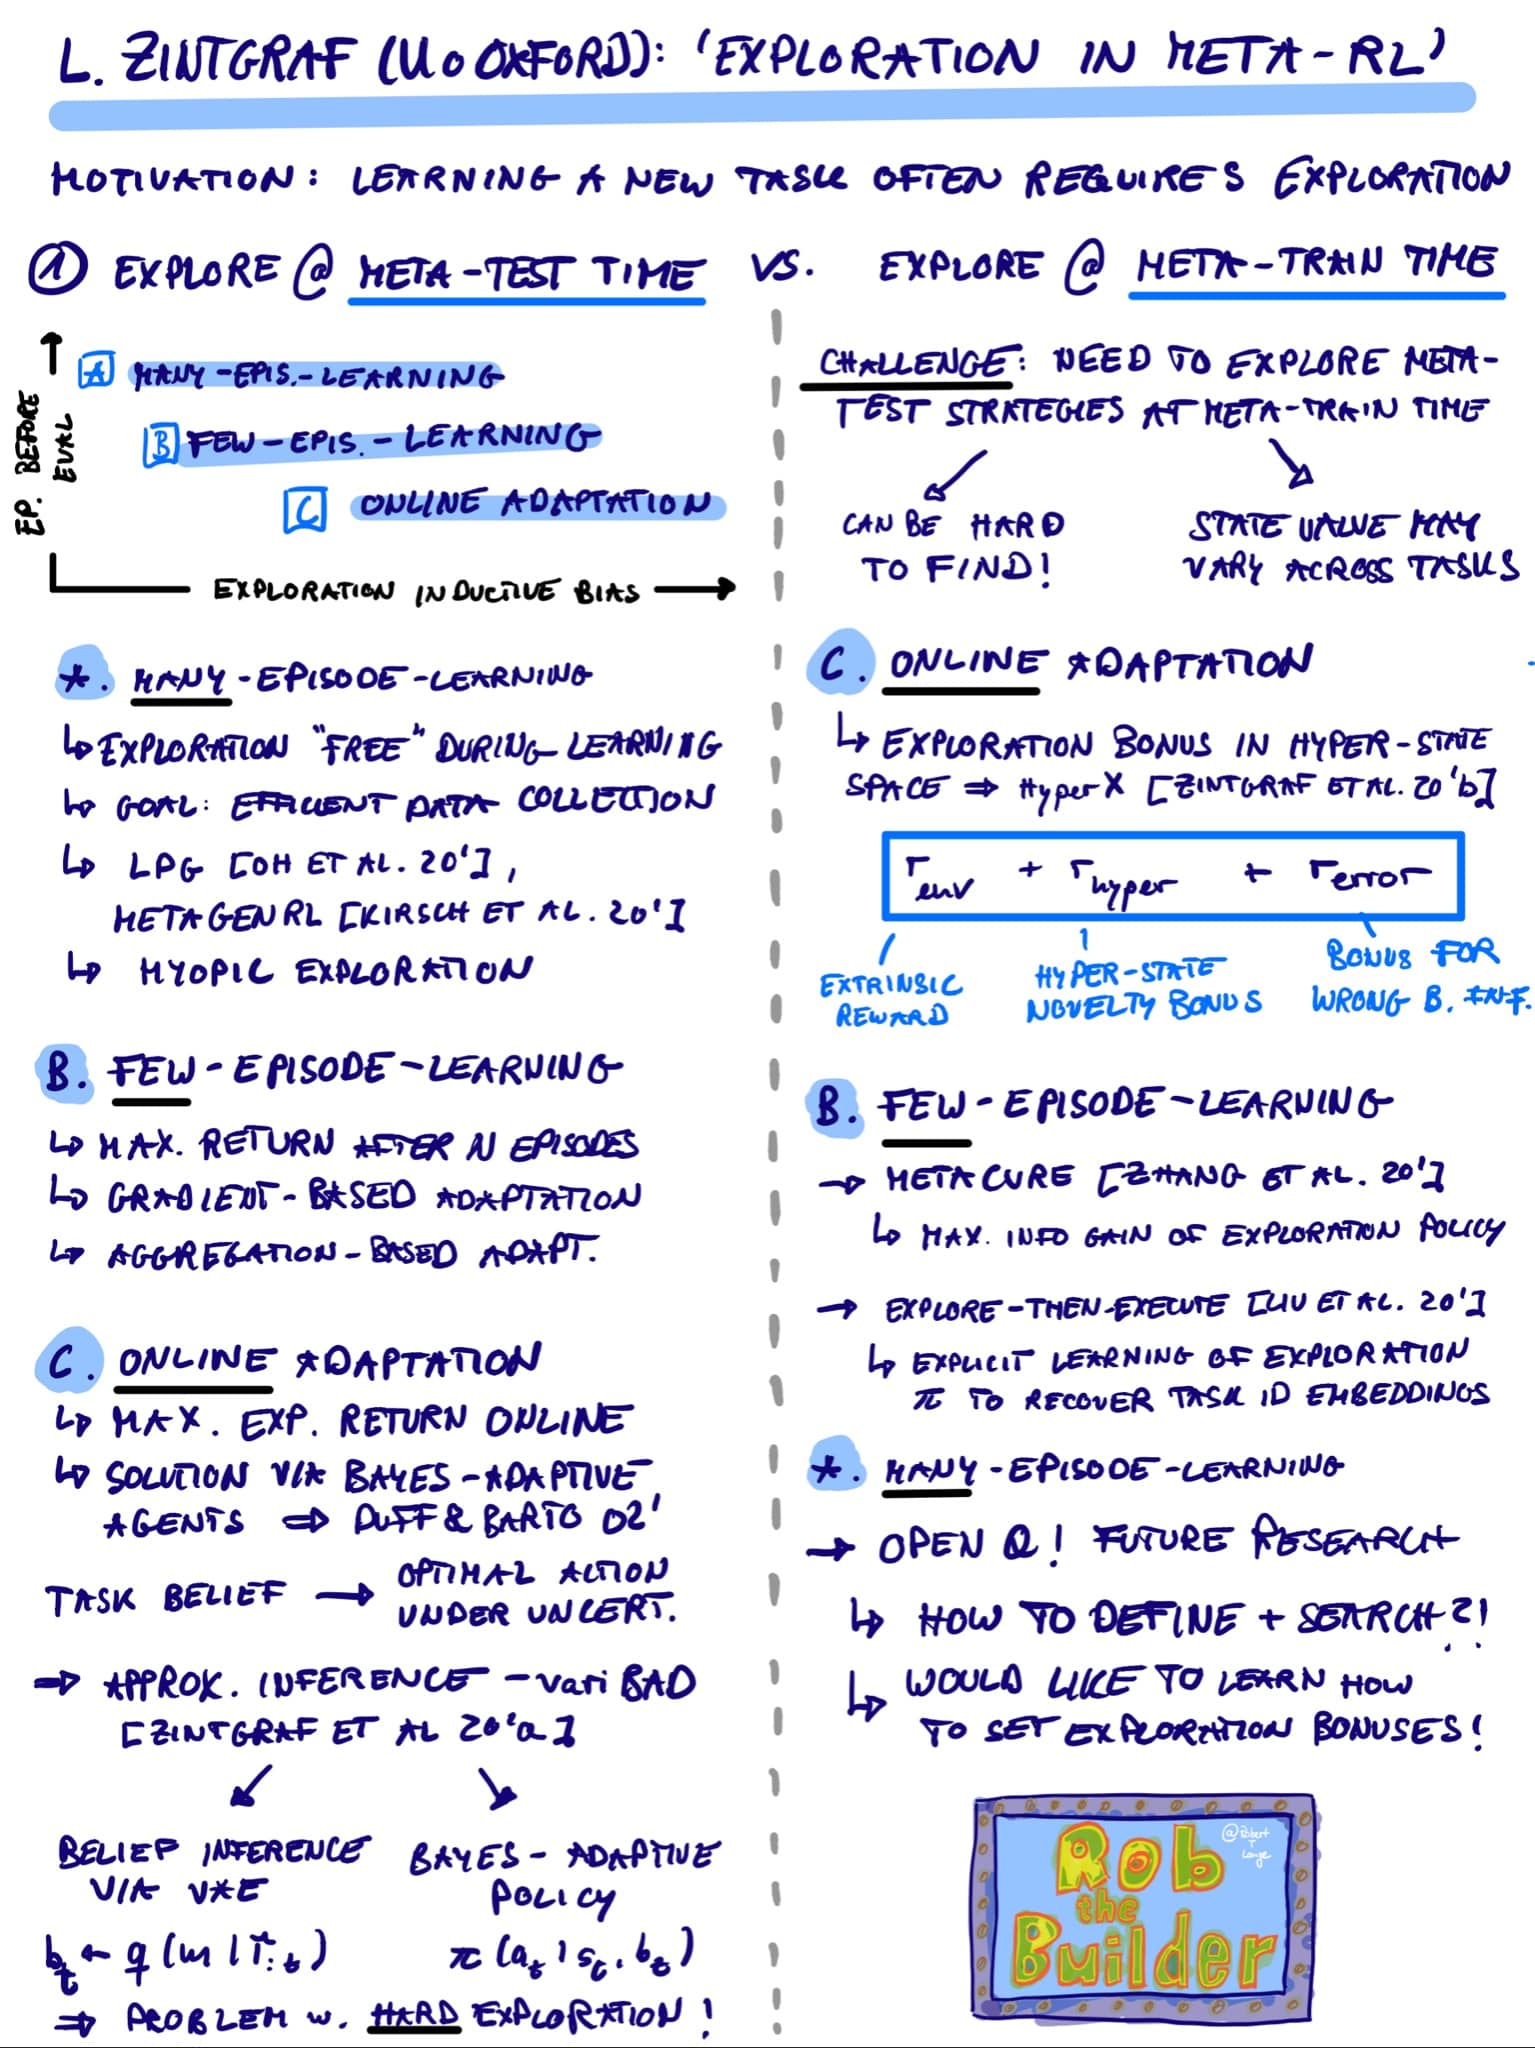 L. ZINTGRAF (U o OXFORD): 'EXPLORATION IN META-RL'
MOTIVATION: LEARNING A NEW TASK OFTEN REQUIRES EXPLORATION
1 EXPLORE @ META-TEST TIME VS. EXPLORE @ META-TRAIN TIME
EP. BEFORE
EVAL
A MANY-EPIS.-LEARNING
B FEW-EPIS.-LEARNING
C ONLINE ADAPTATION
EXPLORATION INDUCTIVE BIAS
*. MANY-EPISODE-LEARNING
↳ EXPLORATION "FREE" DURING LEARNING
↳ GOAL: EFFICIENT DATA COLLECTION
↳ LPG [OH ET AL. 20'],
METAGENRL [KIRSCH ET AL. 20']
↳ MYOPIC EXPLORATION
B. FEW-EPISODE-LEARNING
↳ MAX. RETURN AFTER N EPISODES
↳ GRADIENT-BASED ADAPTATION
↳ AGGREGATION-BASED ADAPT.
C. ONLINE ADAPTATION
↳ MAX. EXP. RETURN ONLINE
↳ SOLUTION VIA BAYES-ADAPTIVE
AGENTS ⇒ DUFF & BARTO 02'
TASK BELIEF → OPTIMAL ACTION
UNDER UNCERT.
⇒ APPROX. INFERENCE - variBAD
[ZINTGRAF ET AL 20'a]
BELIEF INFERENCE
VIA VAE
b_t ← q(m|τ_:t)
BAYES-ADAPTIVE
POLICY
π(a_t|s_t, b_t)
⇒ PROBLEM w. HARD EXPLORATION!
CHALLENGE: NEED TO EXPLORE META-
TEST STRATEGIES AT META-TRAIN TIME
CAN BE HARD
TO FIND!
STATE VALUE MAY
VARY ACROSS TASKS
C. ONLINE ADAPTATION
↳ EXPLORATION BONUS IN HYPER-STATE
SPACE ⇒ HyperX [ZINTGRAF ET AL. 20'b]
r_env + r_hyper + r_error
EXTRINSIC
REWARD
HYPER-STATE
NOVELTY BONUS
BONUS FOR
WRONG B. INF.
B. FEW-EPISODE-LEARNING
→ METACURE [ZHANG ET AL. 20']
↳ MAX. INFO GAIN OF EXPLORATION POLICY
→ EXPLORE-THEN-EXECUTE [LIU ET AL. 20']
↳ EXPLICIT LEARNING OF EXPLORATION
π TO RECOVER TASK ID EMBEDDINGS
*. MANY-EPISODE-LEARNING
→ OPEN Q! FUTURE RESEARCH
↳ HOW TO DEFINE + SEARCH?!
↳ WOULD LIKE TO LEARN HOW
TO SET EXPLORATION BONUSES!
@Robert
T
Lange
Rob
the
Builder